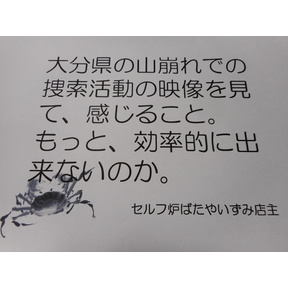 大分県の山崩れでの
捜索活動の映像を見
て、感じること。
もっと、効率的に出
来ないのか。
セルフ炉ばたやいずみ店主